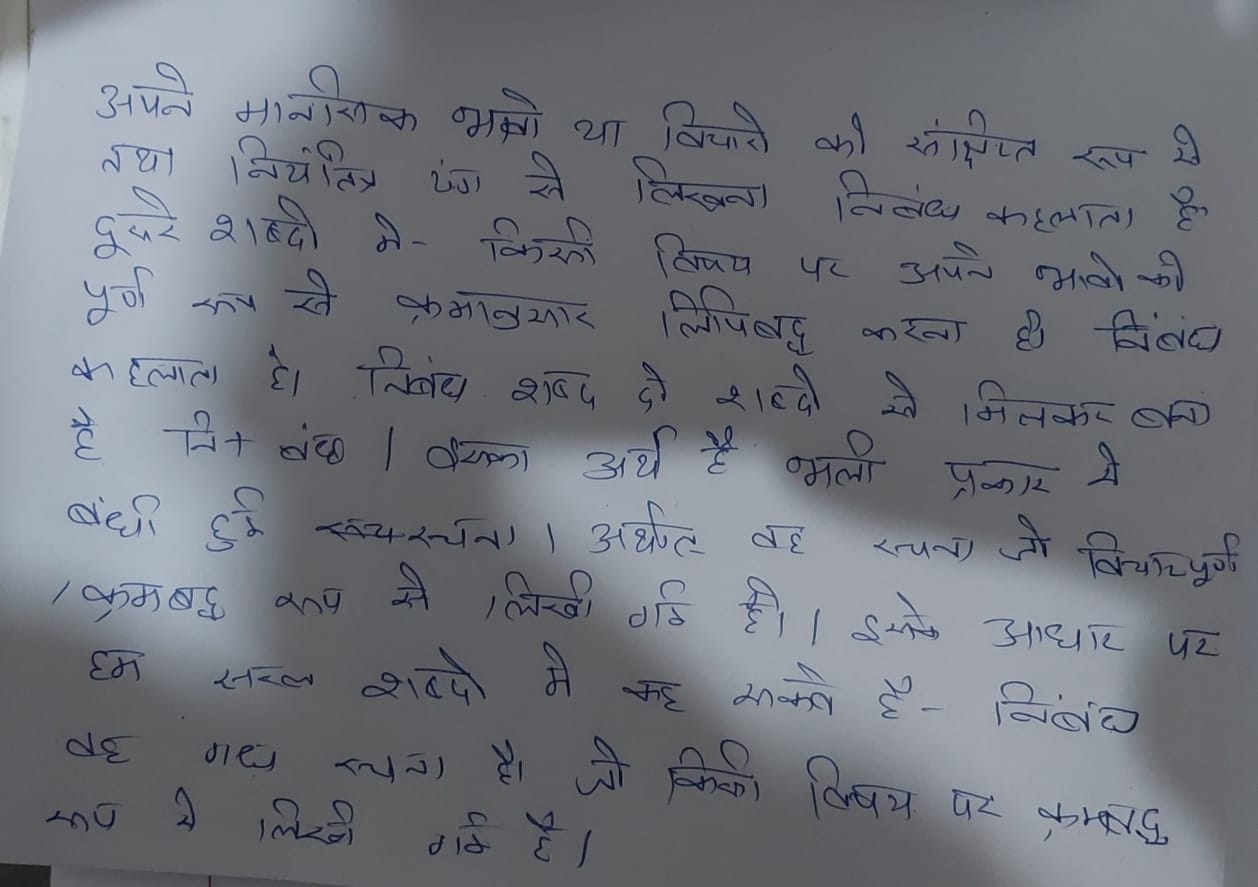 अपने मानसिक भावो या विचारो को संक्षिप्त रूप से
तथा नियंत्रित ढंग से लिखना निबंध कहलाता है
दूसरे शब्दो मे- किसी विषय पर अपने भावो को
पूर्ण रूप से क्रमानुसार लिपिबद्ध करना ही निबंध
कहलाता है। निबंध शब्द दो शब्दो से मिलकर बना
है नि+ बंध। इसका अर्थ है भली प्रकार से
बंधी हुई रचना। अर्थात वह रचना जो विचारपूर्ण
/क्रमबद्ध रूप से लिखी गई हो। इसके आधार पर
हम सरल शब्दो मे कह सकते है- निबंध
वह गद्य रचना है। जो किसी विषय पर क्रमबद्ध
रूप से लिखी गई है।